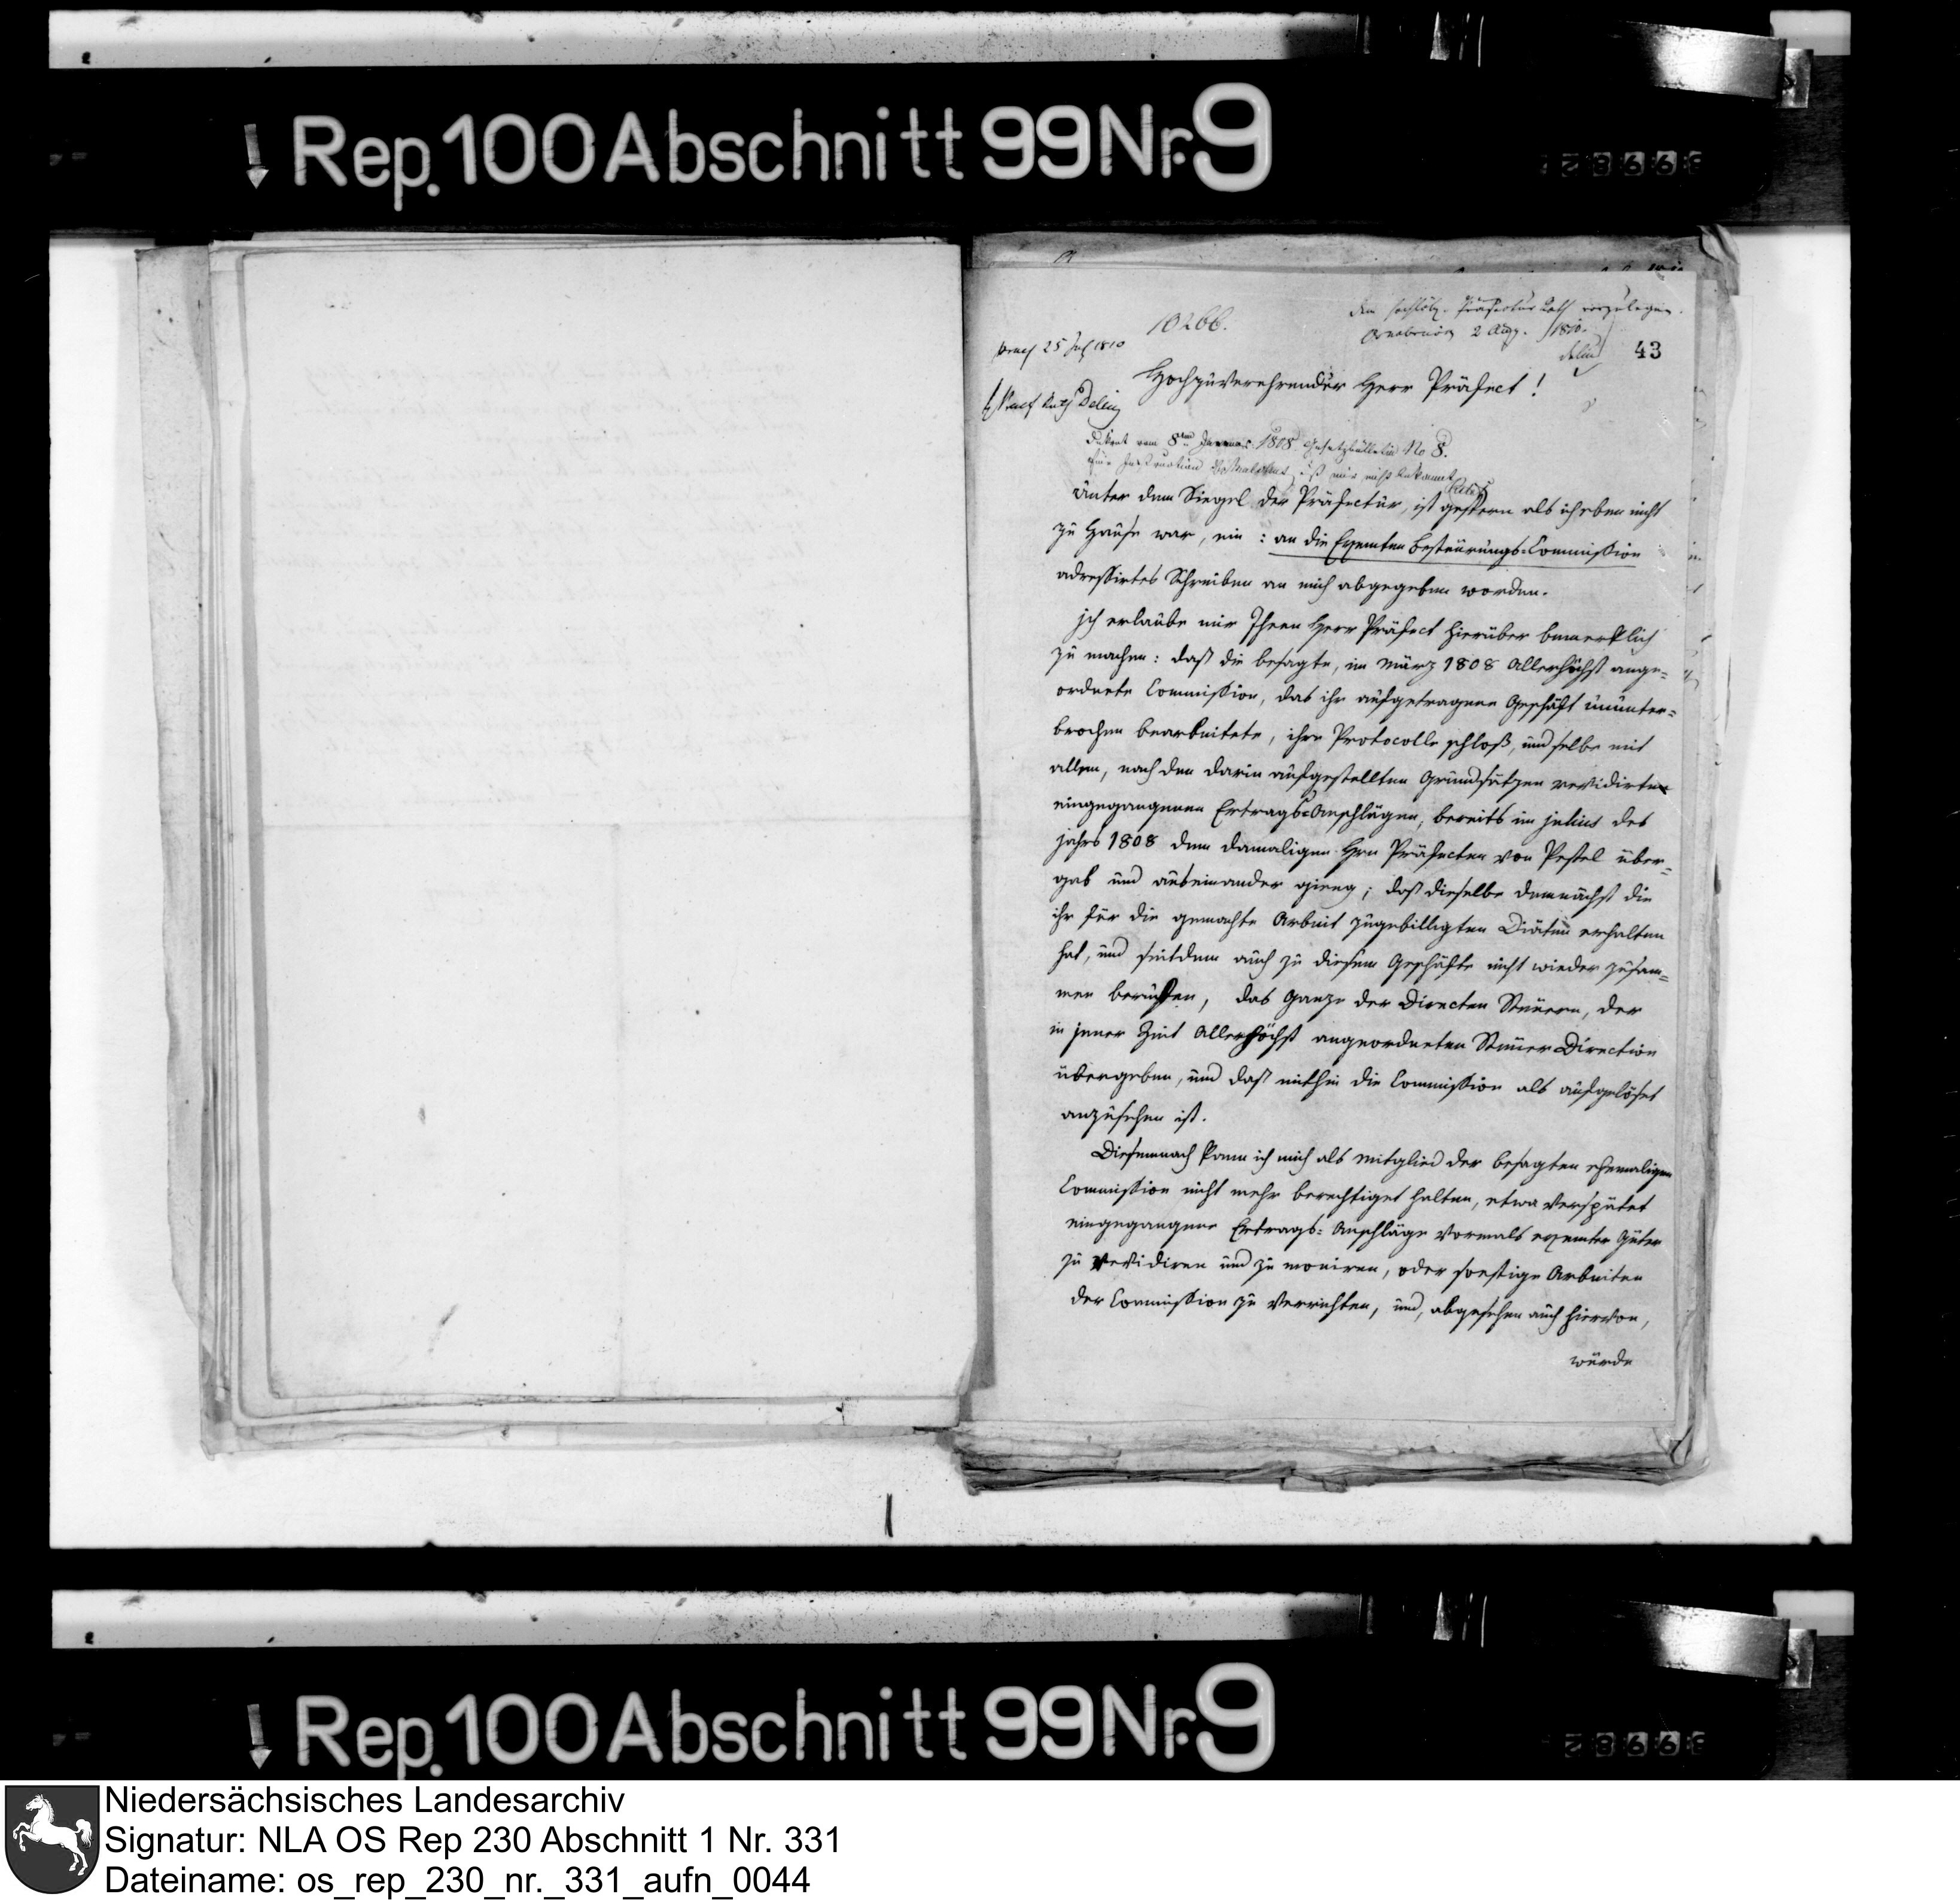 Rep. 100 Abschnitt 99 Nr. 9
10266.
dem hochlöbl. Präfectur Rath vorzulegen.
Osnabrück 2 Aug. 1810.
praes 25 Jul 1810
43
Hochzuverehrender Herr Präfect!
Dekret vom 8ten Januar 1808 Gesetzbülletin No 8.
Eine Instruction ist mir nicht bekannt
Unter dem Siegel der Präfectur, ist gestern als ich eben nicht
zu Hause war, ein: an die Exemten Besteurungs-Commission
adressirtes Schreiben an mich abgegeben worden.
Ich erlaube mir Ihnen Herr Präfect hierüber bemerklich
zu machen: daß die besagte, im März 1808 Allerhöchst ange=
ordnete Commission, das ihr aufgetragene Geschäft ununter=
brochen bearbeitete, ihre Protocolle schloß, und selbe mit
allen, nach den darin aufgestellten Grundsätzen revidirten
eingegangenen Ertrags-Anschlägen, bereits im Julius des
Jahrs 1808 dem damaligen Hrn Präfecten von Pestel über=
gab und auseinander gieng; daß dieselbe demnächst die
ihr für die gemachte Arbeit zugebilligten Diäten erhalten
hat, und seitdem auch zu diesem Geschäfte nicht wieder zusam=
men berufen, das Ganze der Directen Steuern, der
in jener Zeit Allerhöchst angeordneten Steuer Direction
übergeben, und daß mithin die Commission als aufgelöset
anzusehen ist.
Diesemnach kann ich mich als Mitglied der besagten ehemaligen
Commission nicht mehr berechtiget halten, etwa verspätet
eingegangene Ertrags-Anschläge vormals exemter Güter
zu revidiren und zu moniren, oder sonstige Arbeiten
der Commission zu verrichten, und, abgesehen auch hiervon,
würde
Rep. 100 Abschnitt 99 Nr. 9
Niedersächsisches Landesarchiv
Signatur: NLA OS Rep 230 Abschnitt 1 Nr. 331
Dateiname: os_rep_230_nr._331_aufn_0044